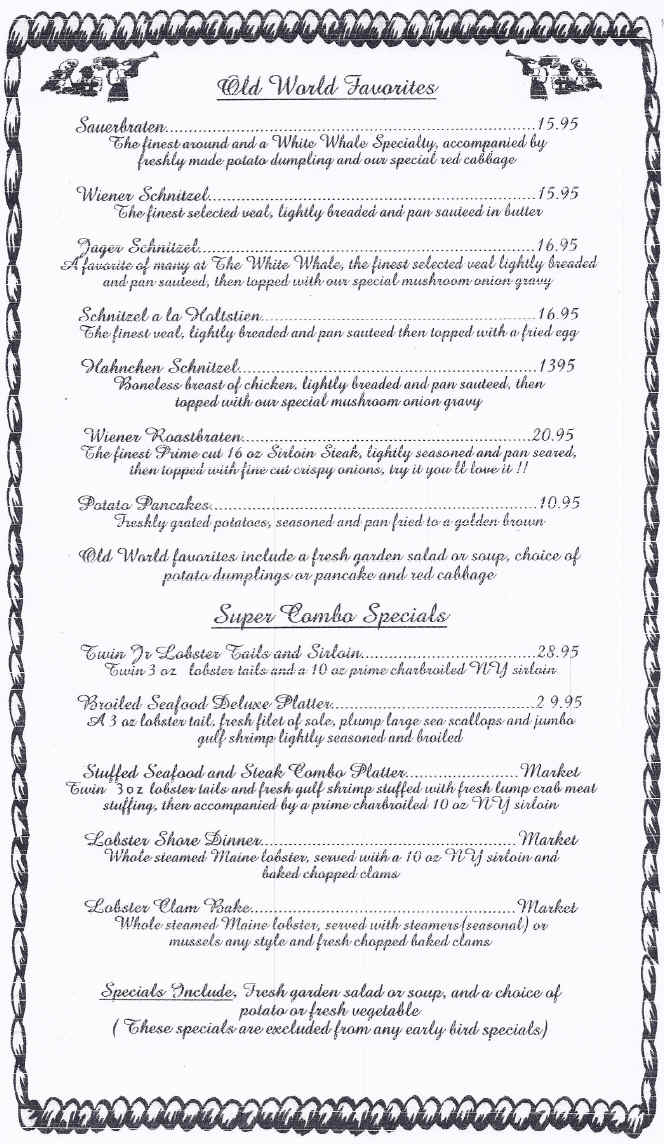 Old World Favorites
Sauerbraten...............................................................15.95
The finest around and a White Whale Specialty, accompanied by
freshly made potato dumpling and our special red cabbage
Wiener Schnitzel.......................................................15.95
The finest selected veal, lightly breaded and pan sauteed in butter
Jager Schnitzel.........................................................16.95
A favorite of many at The White Whale, the finest selected veal lightly breaded
and pan sauteed, then topped with our special mushroom onion gravy
Schnitzel a la Holtstien..............................................16.95
The finest veal, lightly breaded and pan sauteed then topped with a fried egg
Hahnchen Schnitzel..................................................1395
Boneless breast of chicken, lightly breaded and pan sauteed, then
topped with our special mushroom onion gravy
Wiener Roastbraten................................................20.95
The finest Prime cut 16 oz Sirloin Steak, lightly seasoned and pan seared,
then topped with fine cut crispy onions, try it you ll love it !!
Potato Pancakes.......................................................10.95
Freshly grated potatoes, seasoned and pan fried to a golden brown
Old World favorites include a fresh garden salad or soup, choice of
potato dumplings or pancake and red cabbage
Super Combo Specials
Twin Jr Lobster Tails and Sirloin..............................28.95
Twin 3 oz lobster tails and a 10 oz prime charbroiled NY sirloin
Broiled Seafood Deluxe Platter...................................2 9.95
A 3 oz lobster tail, fresh filet of sole, plump large sea scallops and jumbo
gulf shrimp lightly seasoned and broiled
Stuffed Seafood and Steak Combo Platter....................Market
Twin 3 oz lobster tails and fresh gulf shrimp stuffed with fresh lump crab meat
stuffing, then accompanied by a prime charbroiled 10 oz NY sirloin
Lobster Shore Dinner...........................................Market
Whole steamed Maine lobster, served with a 10 oz NY sirloin and
baked chopped clams
Lobster Clam Bake.............................................Market
Whole steamed Maine lobster, served with steamers(seasonal) or
mussels any style and fresh chopped baked clams
Specials Include, Fresh garden salad or soup, and a choice of
potato or fresh vegetable
( These specials are excluded from any early bird specials)